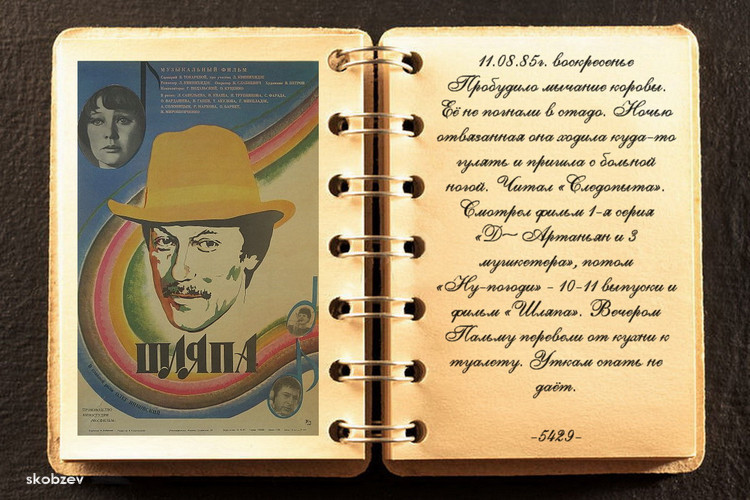 МУЗЫКАЛЬНЫЙ ФИЛЬМ
ШЛЯПА
11.08.85г. воскресенье
Пробудило мычание коровы.
Её не погнали в стадо. Ночью
отвязанная она ходила куда-то
гулять и пришла с больной
ногой. Читал «Следопыта».
Смотрел фильм 1-я серия
«Д~ Артаньян и 3
мушкетера», потом
«Ну-погоди» - 10-11 выпуски и
фильм «Шляпа». Вечером
Пальму перевели от кухни к
туалету. Уткам спать не
даёт.
-5429-
skobzev